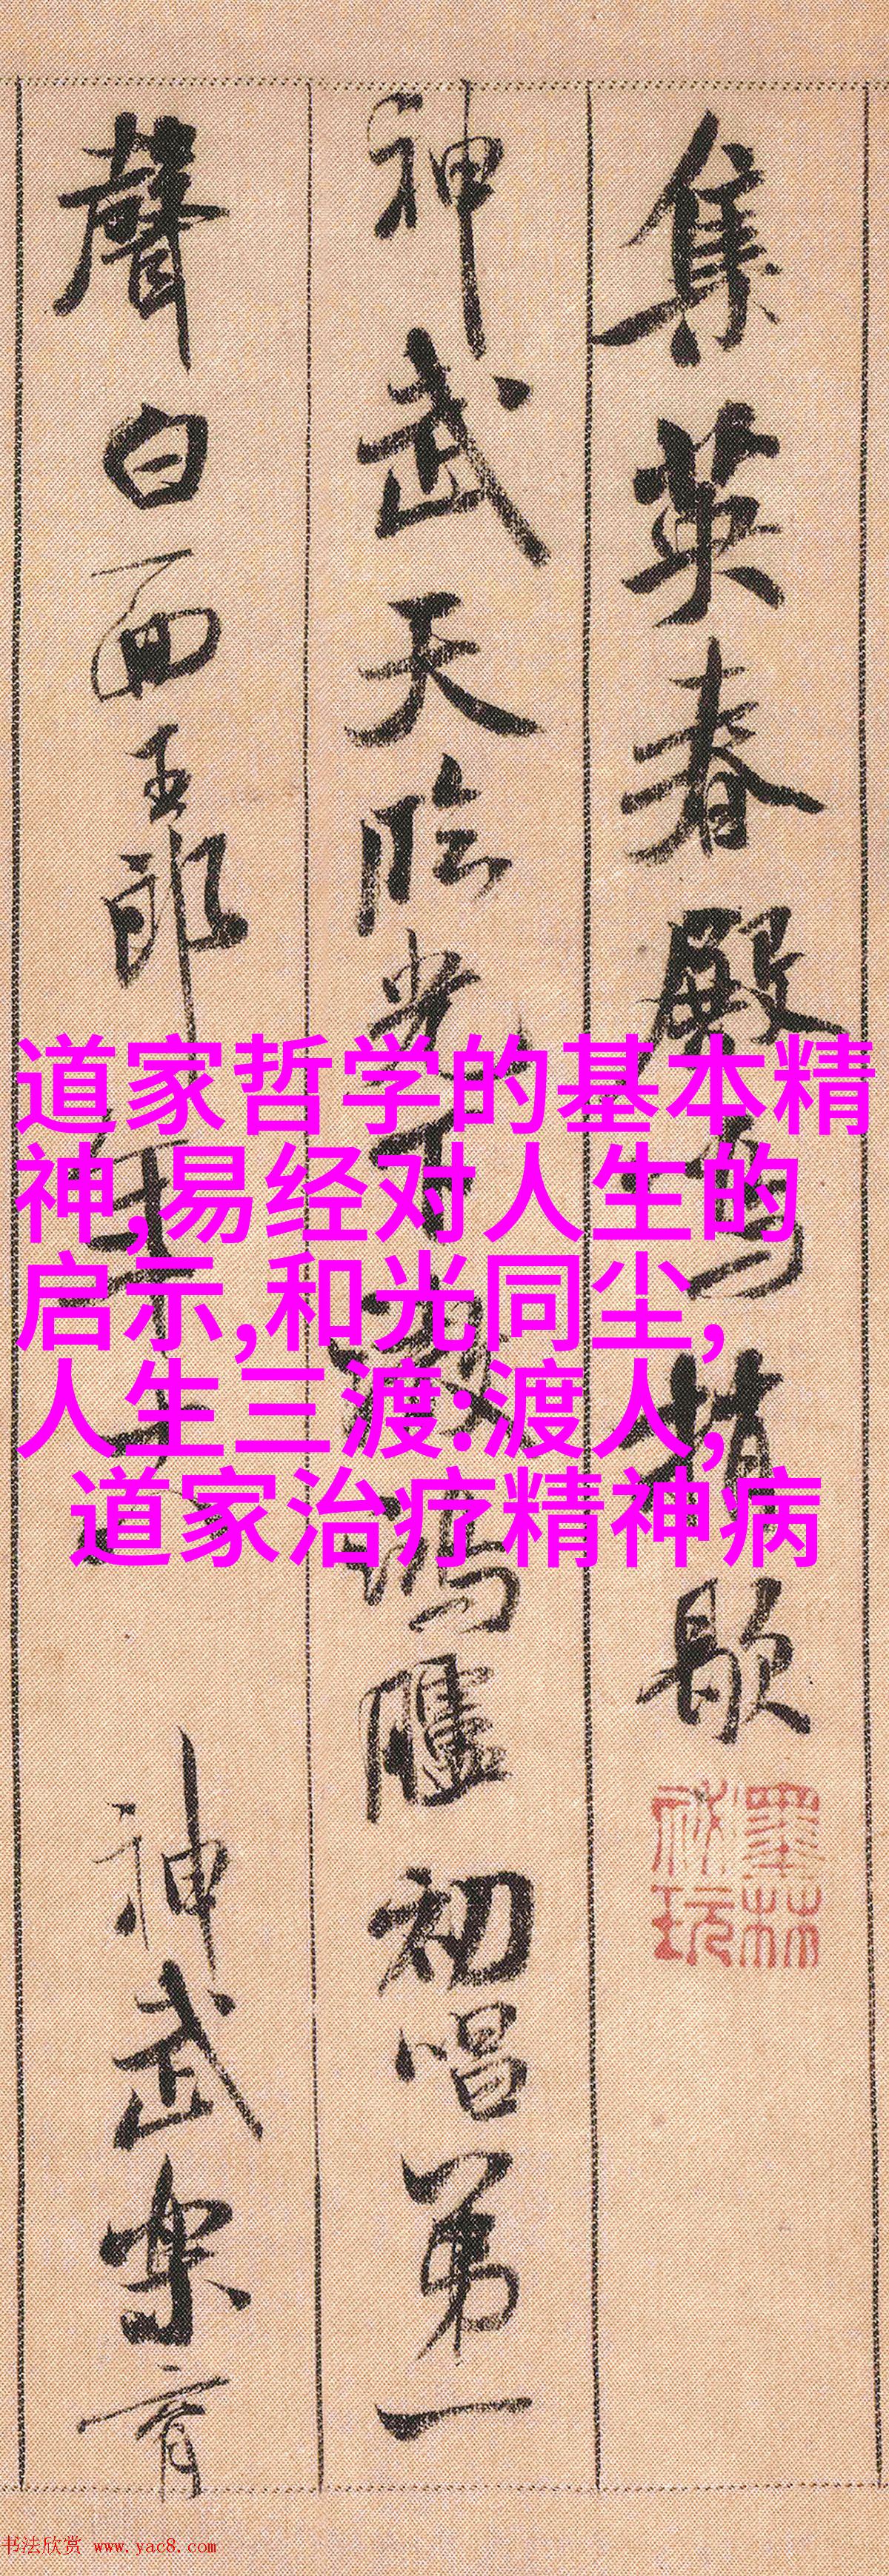 集英春殿鸣捎歇
神武天临光下澈鸿胪初唱第一
声白面王郎年十八神武乐音
墨林秘玩
道家哲学的基本精
神,易经对人生的
启示,和光同尘,
人生三渡:渡人,
道家治疗精神病
书法欣赏 www.yac8.com